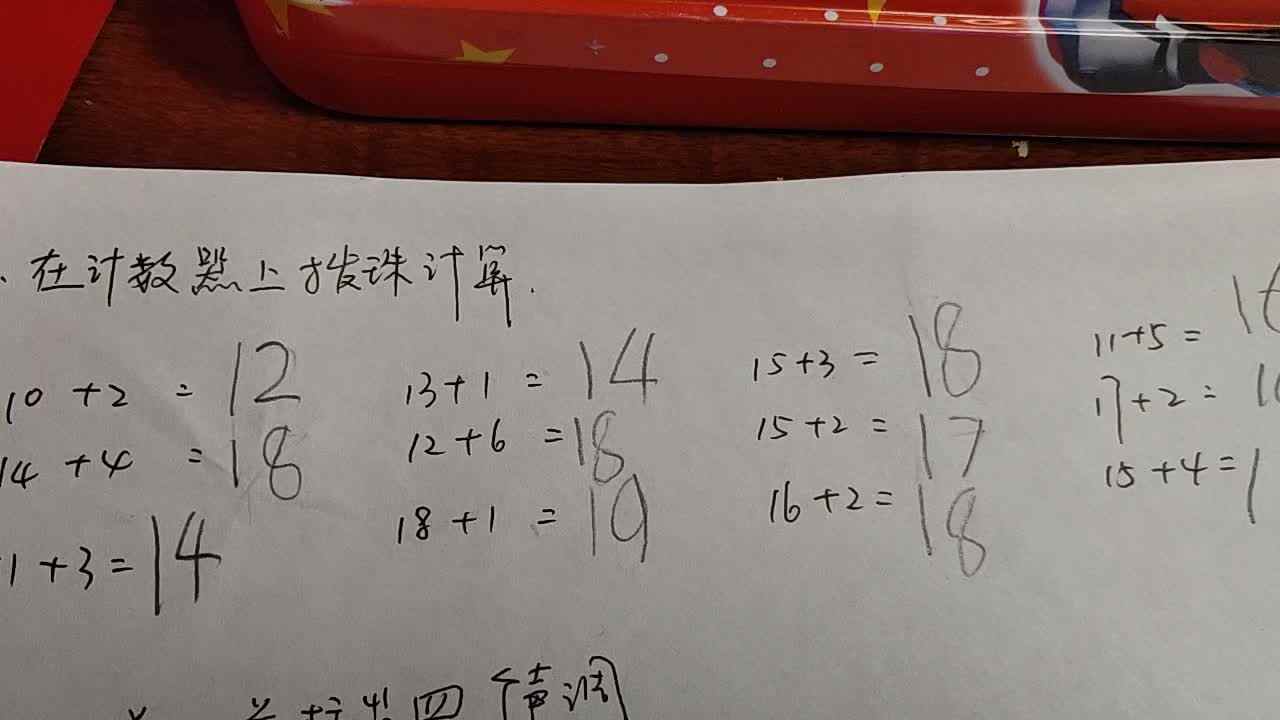 在计数器上拨珠计算.
10 + 2 = 12 13+1 = 14 15+3 = 18 11+5 =
14 + 4 = 18 12+6 = 18 15+2 = 17 17+2 =
1+3 = 14 18+1 = 19 16+2 = 18 15+4 =
四 声调